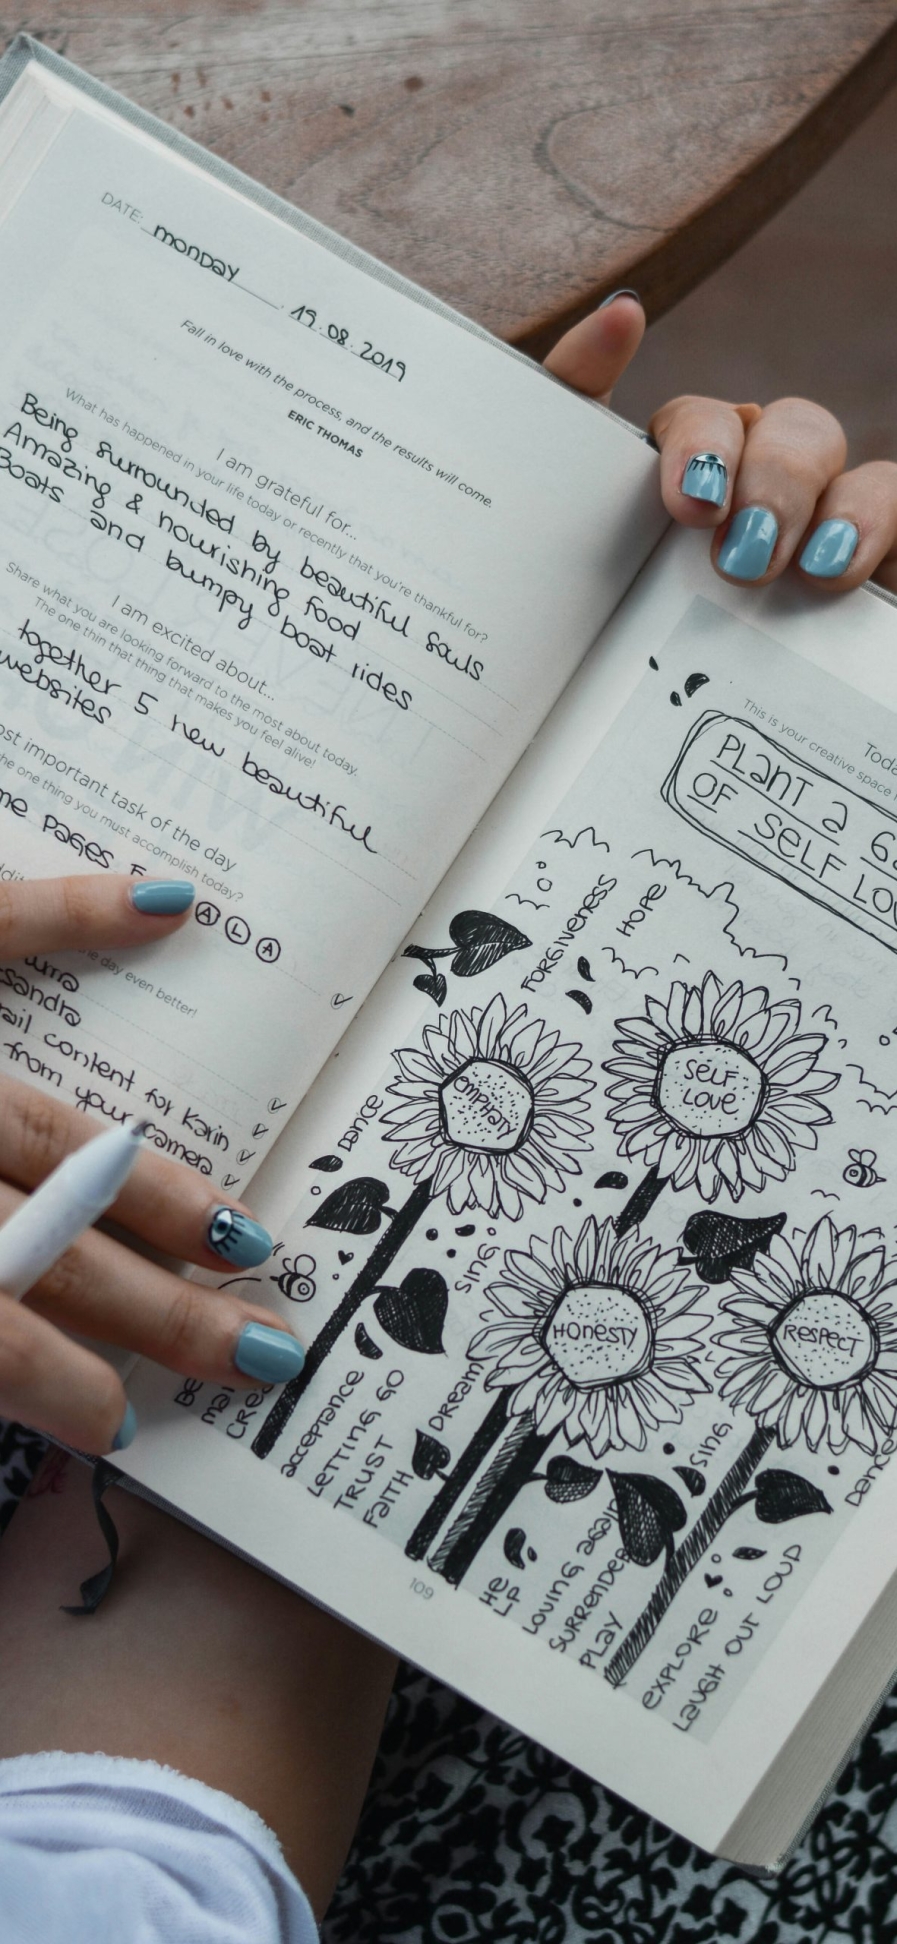 DATE: monday 19.08.2019
Fall in love with the process, and the results will come.
ERIC THOMAS
I am grateful for...
What has happened in your life today or recently that you're thankful for?
Being surrounded by beautiful souls
Amazing & nourishing food
Boats and bumpy boat rides
I am excited about...
Share what you are looking forward to the most about today.
The one thin that thing that makes you feel alive!
together 5 new beautiful
websites
important task of the day
the one thing you must accomplish today?
pages
A L A
the day even better!
content for Karin
from your camera
109
Today
This is your creative space
PLANT a
OF SELF
FORGIVENESS
HOPE
EMPHATY
SELF
LOVE
DANCE
SING
HONESTY
RESPECT
acceptance
LETTING GO
TRUST
FAITH
Dream
SING
Dance
HE
LP
LOVING again
SURRENDER
PLAY
EXPLORE
LAUGH OUT LOUD